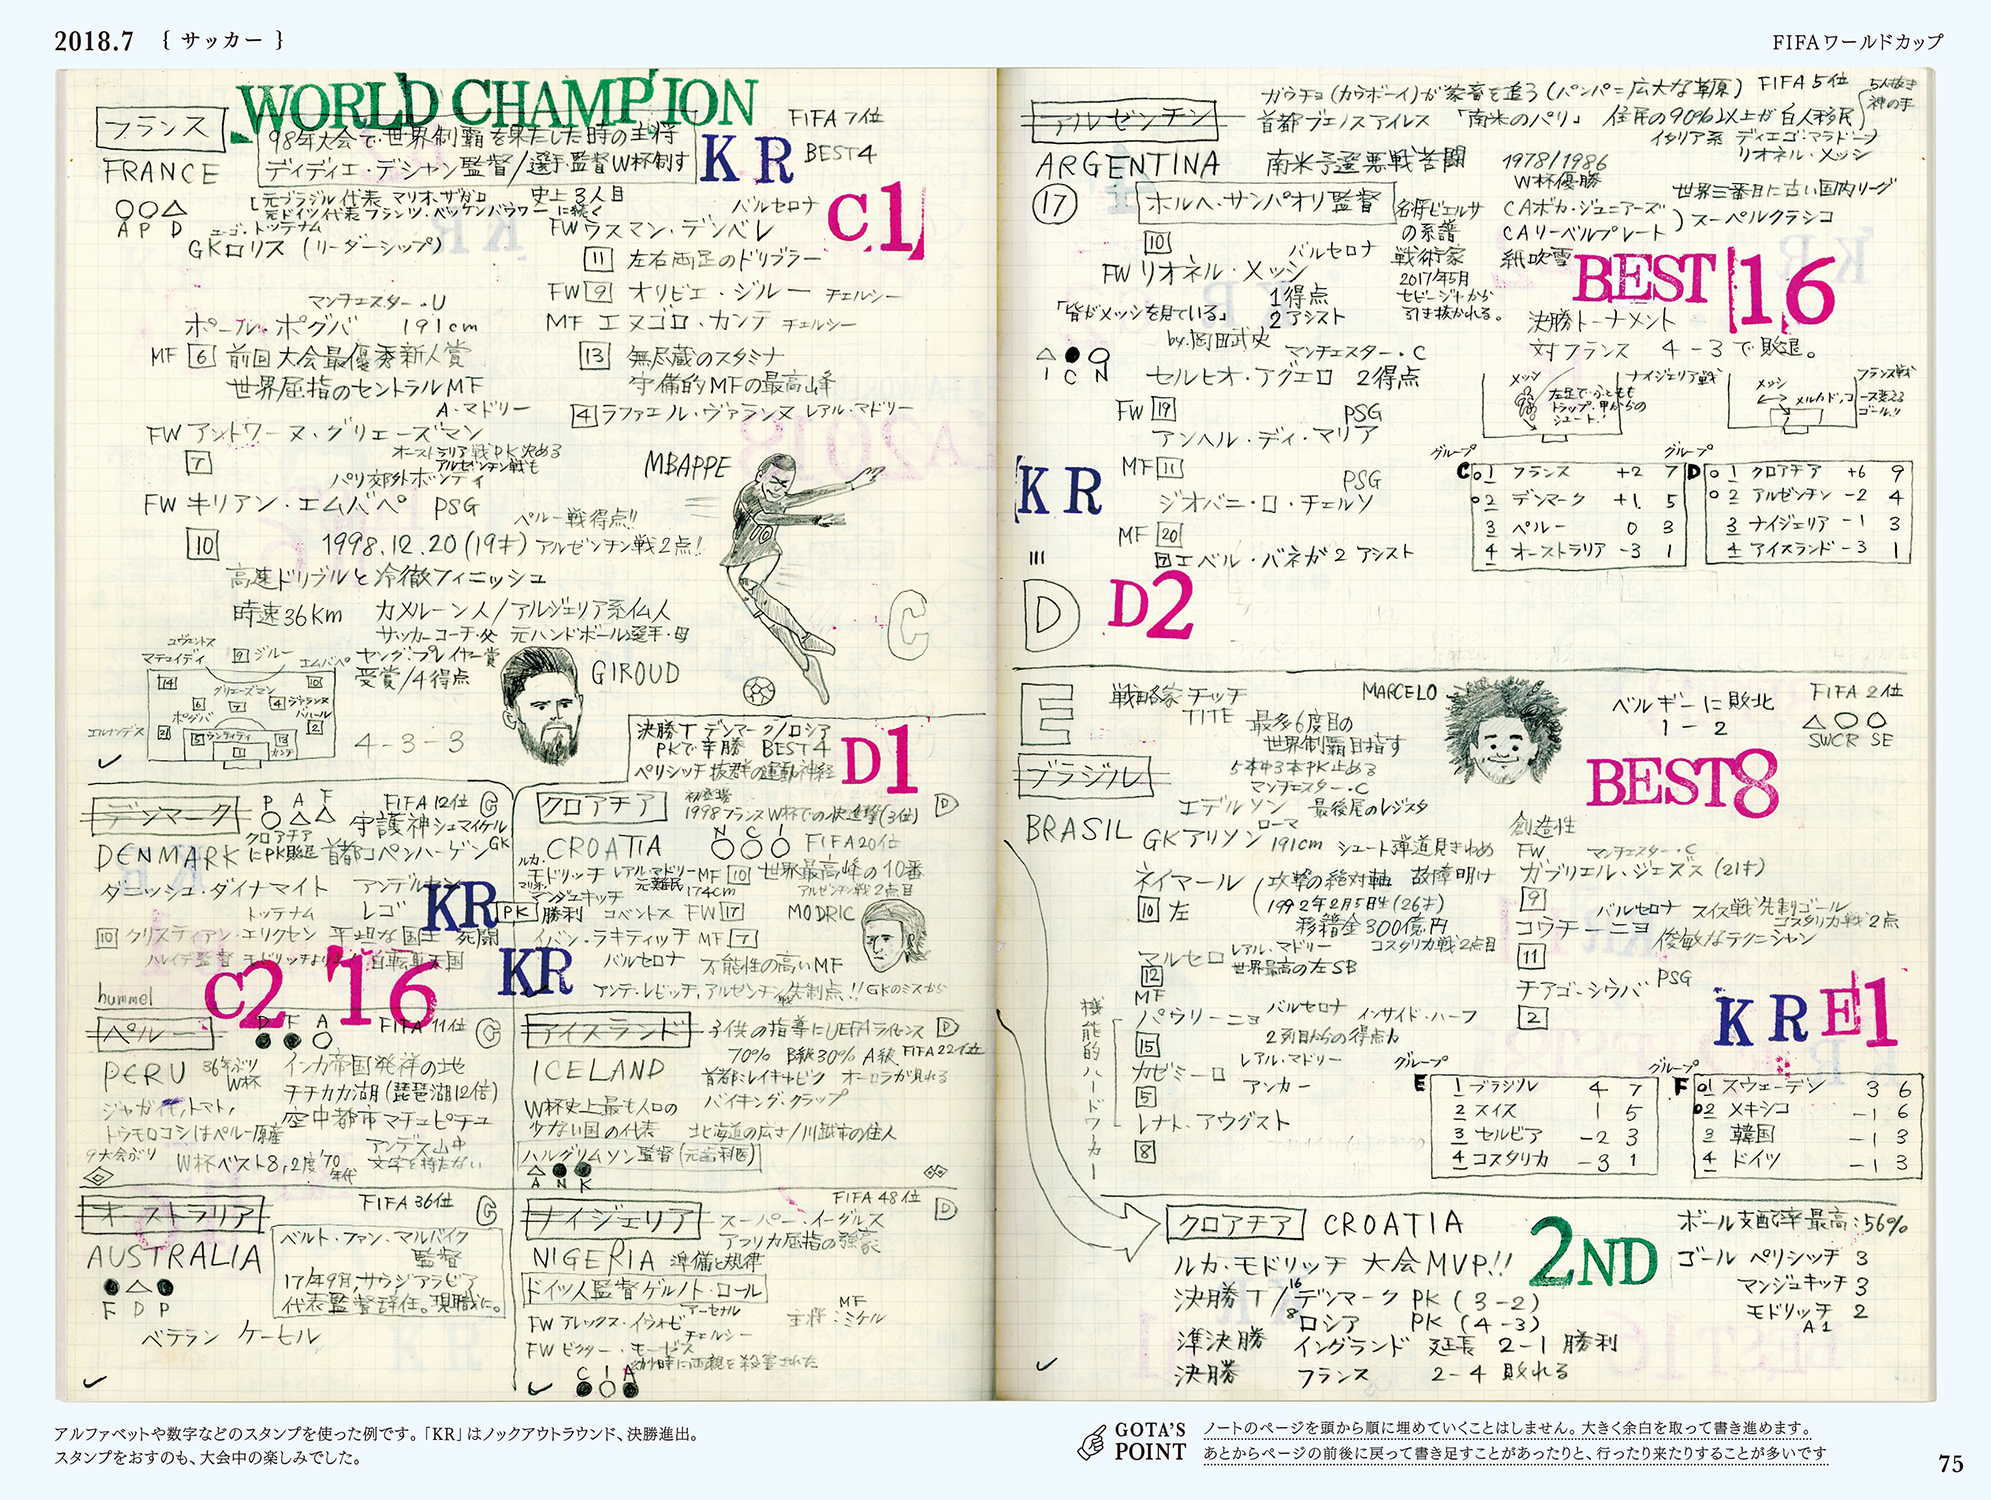 2018.7 { サッカー }
FIFAワールドカップ
WORLD CHAMPION
フランス
FRANCE
FIFA 7位
BEST4
98年大会で世界制覇を果たした時の主将
ディディエ・デシャン監督/選手監督W杯制す
KR
元ブラジル代表 マリオ・ザガロ 史上3人目
元ドイツ代表 フランツ・ベッケンバウワーに続く
C1
○○△
A P D
GKロリス (リーダーシップ)
トッテナム
バルセロナ
FWウスマン・デンベレ
11 左右両足のドリブラー
FW 9 オリビエ・ジルー チェルシー
MF エヌゴロ・カンテ チェルシー
13 無尽蔵のスタミナ
守備的MFの最高峰
4 ラファエル・ヴァランヌ レアル・マドリー
マンチェスター・U
ポール・ポグバ 191cm
MF 6 前回大会最優秀新人賞
世界屈指のセントラルMF
A・マドリー
FW アントワーヌ・グリエーズマン
7
オーストラリア戦PK決める
アルゼンチン戦も
パリ郊外ボンディ
FW キリアン・エムバペ PSG
ペルー戦得点!!
10 1998.12.20(19才) アルゼンチン戦2点!
高速ドリブルと冷徹フィニッシュ
時速36Km カメルーン人/アルジェリア系仏人
サッカーコーチ・父 元ハンドボール選手・母
ヤング・プレイヤー賞
受賞/4得点
MBAPPE
GIROUD
C
ユヴェントス
マテュイディ
9 ジルー
エムバペ
14
10
グリエーズマン
6
7
4
ポグバ
エルナンデス
21
5
ウンティティ
13
カンテ
2
1
4-3-3
決勝T デンマーク/ロシア
PKで辛勝 BEST4
ペリシッチ 抜群の運動神経
D1
デンマーク
P A F
○ △ △
FIFA 12位 C
クロアチア
にPK敗退
守護神シュマイケル
GK
DENMARK
首都コペンハーゲン
ダニッシュ・ダイナマイト
アンデルセン
レゴ
KR
トッテナム
10 クリスティアン・エリクセン
平坦な国土 死闘
自転車天国
hummel
C2 16
クロアチア
初登場
1998フランスW杯での快進撃(3位)
D
CROATIA
N C I
○ ○ ○
FIFA20位
ルカ・
モドリッチ レアル・マドリー MF 10 世界最高峰の10番
元難民 174cm
アルゼンチン戦2点目
マリオ・
マンジュキッチ
PK 勝利
FW 17
MODRIC
イバン・ラキティッチ MF 7
バルセロナ
万能性の高いMF
KR
アンテ・レビッチ, アルゼンチン戦先制点!! GKのミスから
ペルー
D F A
● ● ○
FIFA 11位 C
PERU
36年ぶり
W杯
インカ帝国発祥の地
チチカカ湖(琵琶湖12倍)
空中都市マチュピチュ
ジャガイモ, トマト,
トウモロコシはペルー原産
アンデス山中
文字を持たない
9大会ぶり
W杯ベスト8, 2度 '70
年代
アイスランド
子供の指導にUEFAライセンス D
70% B級30% A級 FIFA22位
ICELAND
首都:レイキャビク オーロラが見れる
バイキング・クラップ
W杯史上最も人口の
少ない国の代表
北海道の広さ/川越市の住人
ハルグリムソン監督(元歯科医)
△ ● ●
A N K
オーストラリア
FIFA 36位 C
AUSTRALIA
ベルト・ファン・マルバイク
監督
17年9月, サウジアラビア
代表監督辞任。現職に。
● △ ●
F D P
ベテラン ケーヒル
ナイジェリア
FIFA 48位 D
スーパー・イーグルス
アフリカ屈指の強豪
NIGERIA 準備と規律
ドイツ人監督ゲルノト・ロール
アーセナル
FW アレックス・イウォビ
主将:ミケル
MF
チェルシー
FW ビクター・モーゼス
幼少時に両親を殺害された
C I A
● ○ ●
ガウチョ(カウボーイ)が家畜を追う(パンパ=広大な草原) FIFA 5位
5人抜き
神の手
アルゼンチン
首都ブエノスアイレス 「南米のパリ」 住民の90%以上が白人移民
イタリア系 ディエゴ・マラドーナ
リオネル・メッシ
ARGENTINA
南米予選悪戦苦闘
1978/1986
W杯優勝
世界三番目に古い国内リーグ
17
ホルヘ・サンパオリ監督
名将ビエルサ
の系譜
戦術家
2017年5月
セビージャから
引き抜かれる。
CAボカ・ジュニアーズ
CAリーベルプレート
スーペルクラシコ
紙吹雪
BEST 16
10
バルセロナ
FW リオネル・メッシ
1得点
2アシスト
「皆がメッシを見ている」
by.岡田武史
決勝トーナメント
対フランス 4-3で敗退。
△ ● ○
I C N
マンチェスター・C
セルヒオ・アグエロ 2得点
FW 19
PSG
アンヘル・ディ・マリア
MF 11
PSG
ジオバニ・ロ・チェルソ
MF 20
7 エベル・バネガ 2アシスト
メッシ
ナイジェリア戦
左足で・ふともも
トラップ・甲からの
シュート!
メッシ
メルカドッ
フランス戦
コース変える
ゴール!!
KR
D
D2
グループ
C
01 フランス +2 7
02 デンマーク +1 5
3 ペルー 0 3
4 オーストラリア -3 1
グループ
D
01 クロアチア +6 9
02 アルゼンチン -2 4
3 ナイジェリア -1 3
4 アイスランド -3 1
E
戦略家 チッチ
TITE
MARCELO
ベルギーに敗北
1-2
FIFA 2位
△ ○ ○
SW CR SE
最多6度目の
世界制覇目指す
5本中3本PK止める
マンチェスター・C
エデルソン 最後尾のレジスタ
ブラジル
BRASIL
BEST8
ローマ
GKアリソン 191cm シュート弾道見きわめ
ネイマール
10 左
攻撃の絶対軸 故障明け
1992年2月5日生(26才)
移籍金300億円
コスタリカ戦2点目
マルセロ レアル・マドリー
世界最高の左SB
12
MF
パウリーニョ バルセロナ インサイド・ハーフ
2列目からの得点力
15
レアル・マドリー
カゼミーロ アンカー
5
レナト・アウグスト
8
機能的ハードワーカー
創造性
FW マンチェスター・C
ガブリエル・ジェズス (21才)
9
バルセロナ スイス戦先制ゴール
コスタリカ戦2点
コウチーニョ
俊敏なテクニシャン
11
PSG
チアゴ・シウバ
2
KR E1
グループ
E
1 ブラジル 4 7
2 スイス 1 5
3 セルビア -2 3
4 コスタリカ -3 1
グループ
F
01 スウェーデン 3 6
02 メキシコ -1 6
3 韓国 -1 3
4 ドイツ -1 3
クロアチア CROATIA
2ND
ボール支配率最高:56%
ルカ・モドリッチ 大会MVP!!
ゴール ペリシッチ 3
マンジュキッチ 3
モドリッチ 2
A1
決勝T/16 デンマーク PK (3-2)
8 ロシア PK (4-3)
準決勝 イングランド 延長 2-1 勝利
決勝 フランス 2-4 敗れる
アルファベットや数字などのスタンプを使った例です。「KR」はノックアウトラウンド、決勝進出。
スタンプをおすのも、大会中の楽しみでした。
GOTA'S
POINT
ノートのページを頭から順に埋めていくことはしません。大きく余白を取って書き進めます。
あとからページの前後に戻って書き足すことがあったりと、行ったり来たりすることが多いです
75